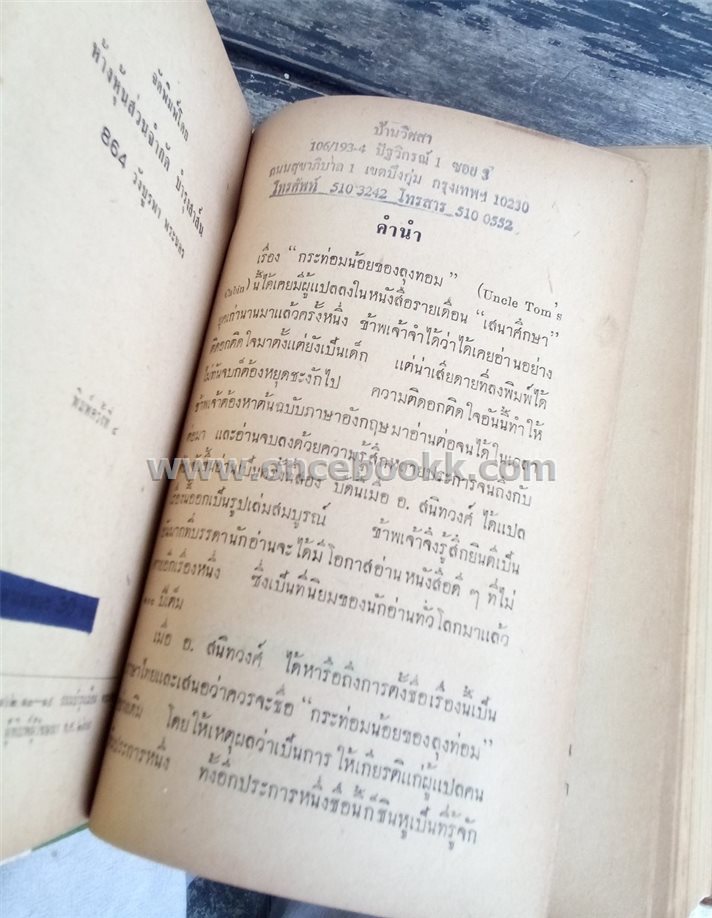 จัดพิมพ์โดย
ห้างหุ้นส่วนจำกัด บำรุงสาส์น
864 วังบูรพา พระนคร
พิมพ์ครั้งที่ ๔
บ้านวิสสา
106/193-4 ปัฐวิกรณ์ 1 ซอย 3
ถนนสุขาภิบาล 1 เขตบึงกุ่ม กรุงเทพฯ 10230
โทรศัพท์ 510 3242 โทรสาร 510 0552
คำนำ
เรื่อง “กระท่อมน้อยของลุงทอม” (Uncle Tom's
Cabin) นี้ได้เคยมีผู้แปลลงในหนังสือรายเดือน “เสนาศึกษา”
ยุคเก่านานมาแล้วครั้งหนึ่ง ข้าพเจ้าจำได้ว่าได้เคยอ่านอย่าง
ติดอกติดใจมาตั้งแต่ยังเป็นเด็ก แต่น่าเสียดายที่ลงพิมพ์ได้
ไม่ทันจบก็ต้องหยุดชะงักไป ความติดอกติดใจอันนี้ทำให้
ข้าพเจ้าต้องหาต้นฉบับภาษาอังกฤษมาอ่านต่อจนได้ในเวลา
ต่อมา และอ่านจบลงด้วยความรู้สึกหลายประการจนถึงกับ
www.oncebookk.com
อ่านเป็นครั้งที่สอง บัดนี้เมื่อ อ. สนิทวงศ์ ได้แปล
เรื่องนี้ออกเป็นรูปเล่มสมบูรณ์ ข้าพเจ้าจึงรู้สึกยินดีเป็น
ที่บรรดานักอ่านจะได้มีโอกาสอ่านหนังสือดี ๆ ที่ไม่
อีกเรื่องหนึ่ง ซึ่งเป็นที่นิยมของนักอ่านทั่วโลกมาแล้ว
ปีเต็ม
เมื่อ อ. สนิทวงศ์ ได้หารือถึงการตั้งชื่อเรื่องนี้เป็น
ภาษาไทยและเสนอว่าควรจะชื่อ “กระท่อมน้อยของลุงทอม”
ตามเดิม โดยให้เหตุผลว่าเป็นการให้เกียรติแก่ผู้แปลคน
ประการหนึ่ง ทั้งอีกประการหนึ่งชื่อนี้ก็ชินหูเป็นที่รู้จัก